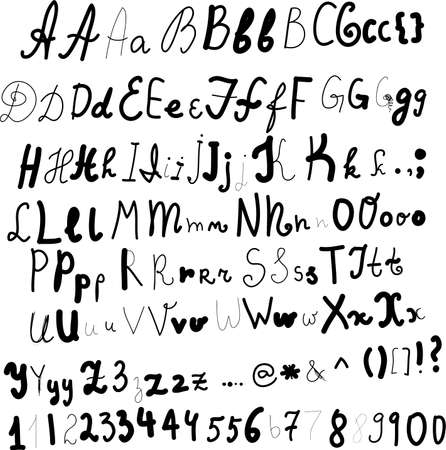 A A A a B B b b B C G c c { }
D D D d E E e ε F f f F G G G g g
H H H h I I i i J J j j J K K k k . , ;
L L l l M M m m N N n n O O o o o
P P p p R R r r R r S S s s s T T t t
U U u u V V v v W W w w X x X x
Y Y y y Z 3 z z z z . . . . @ * & ^ ( ) [ ] ! ?
1 1 1 2 2 3 3 4 4 4 5 5 6 6 7 7 8 8 9 9 0 0